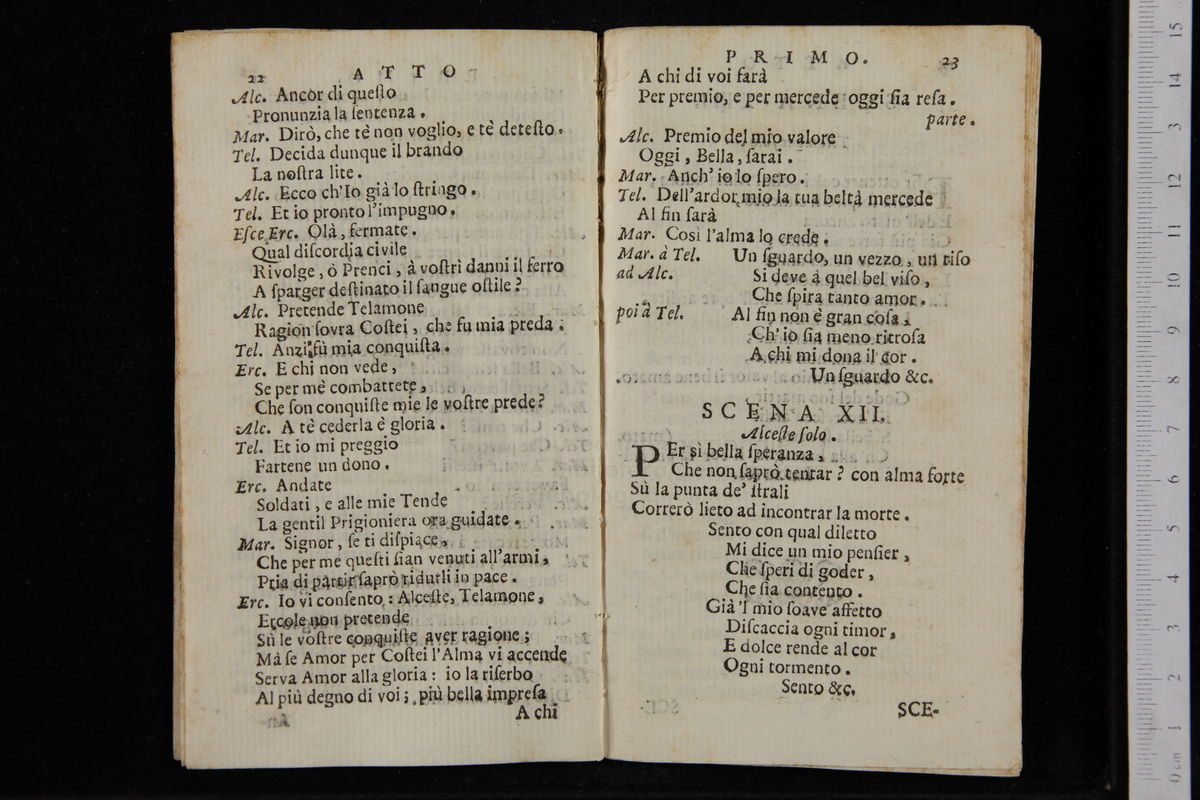 22 ATTO
Alc. Ancòr di queſto
Pronunzia la ſentenza.
Mar. Dirò, che tè non voglio, e tè deteſto.
Tel. Decida dunque il brando
La noſtra lite.
Alc. Ecco ch'Io già lo ſtringo.
Tel. Et io pronto l'impugno.
Eſce Erc. Olà, fermate.
Qual diſcordia civile
Rivolge, ò Prenci, à voſtri danni il ferro
A ſparger deſtinato il ſangue oſtile?
Alc. Pretende Telamone
Ragion ſovra Coſtei, che fu mia preda.
Tel. Anzi fù mia conquiſta.
Erc. E chi non vede,
Se per mè combattete,
Che ſon conquiſte mie le voſtre prede?
Alc. A tè cederla è gloria.
Tel. Et io mi preggio
Fartene un dono.
Erc. Andate
Soldati, e alle mie Tende
La gentil Prigioniera ora guidate.
Mar. Signor, ſe ti diſpiace,
Che per me queſti ſian venuti all'armi,
Pria di partir ſaprò ridurli in pace.
Erc. Io vi conſento: Alceſte, Telamone,
Ercole non pretende
Sù le voſtre conquiſte aver ragione;
Mà ſe Amor per Coſtei l'Alma vi accende
Serva Amor alla gloria: io la riſerbo
Al più degno di voi; più bella impreſa
A chi
PRIMO. 23
A chi di voi farà
Per premio, e per mercede oggi ſia reſa.
parte.
Alc. Premio del mio valore
Oggi, Bella, ſarai.
Mar. Anch' io lo ſpero.
Tel. Dell'ardor mio la tua beltà mercede
Al fin ſarà
Mar. Così l'alma lo crede.
Mar. à Tel. Un ſguardo, un vezzo, un riſo
ad Alc. Si deve à quel bel viſo,
Che ſpira tanto amor.
poi à Tel. Al fin non è gran coſa,
Ch' io ſia meno ritroſa
A chi mi dona il cor.
Un ſguardo &c.
SCENA XII.
Alceſte ſolo.
PEr sì bella ſperanza,
Che non ſaprò tentar? con alma forte
Sù la punta de' ſtrali
Correrò lieto ad incontrar la morte.
Sento con qual diletto
Mi dice un mio penſier,
Che ſperi di goder,
Che ſia contento.
Già 'l mio ſoave affetto
Diſcaccia ogni timor,
E dolce rende al cor
Ogni tormento.
Sento &c.
SCE-
15
14
13
12
11
10
9
8
7
6
5
4
3
2
1
0 cm